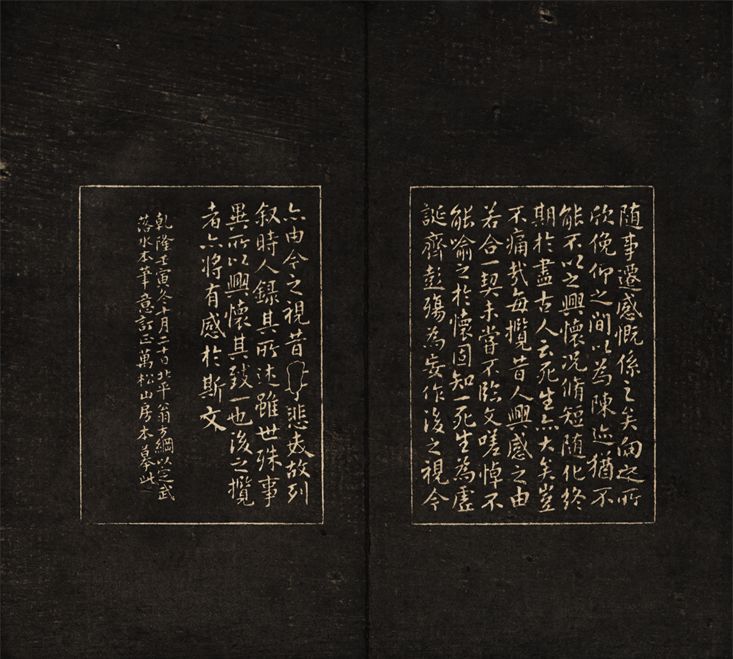 随事遷感慨係之矣向之所
欣俛仰之間以為陳迹猶不
能不以之興懷況脩短随化終
期於盡古人云死生亦大矣豈
不痛哉每攬昔人興感之由
若合一契未嘗不臨文嗟悼不
能喻之於懷固知一死生為虛
誕齊彭殤為妄作後之視今
亦由今之視昔悲夫故列
叙時人錄其所述雖世殊事
異所以興懷其致一也後之攬
者亦將有感於斯文
乾隆壬寅冬十月二十日北平翁方綱以定武
落水本筆意訂正萬松山房本摹此